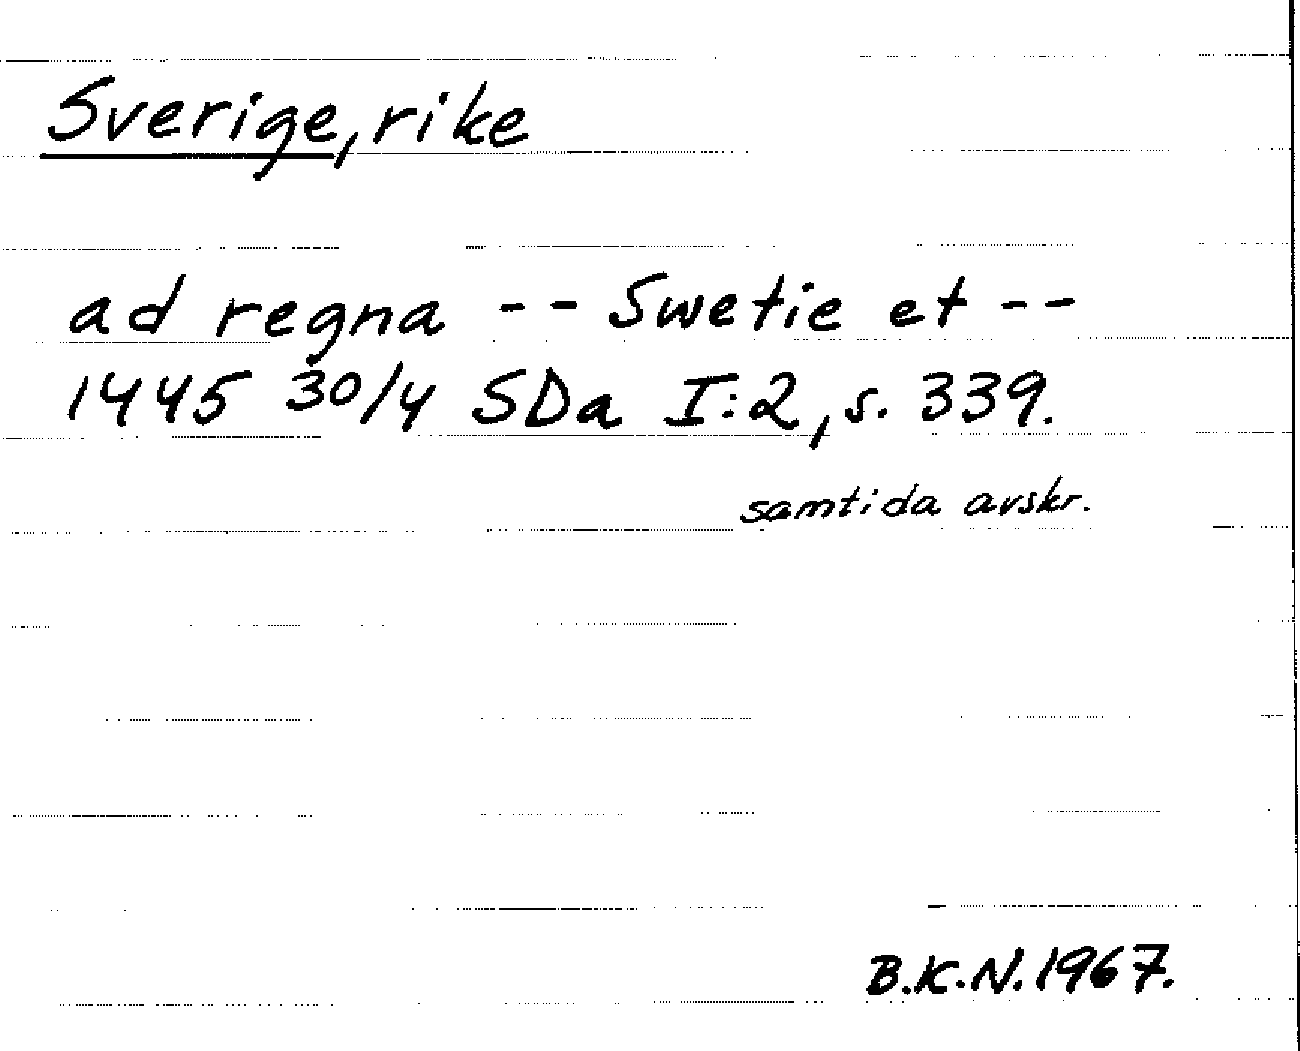 Sverige, rike
ad regna -- Swetie et --
1445 30/4 SDa I:2, s. 339.
samtida avskr.
B.K.N. 1967.